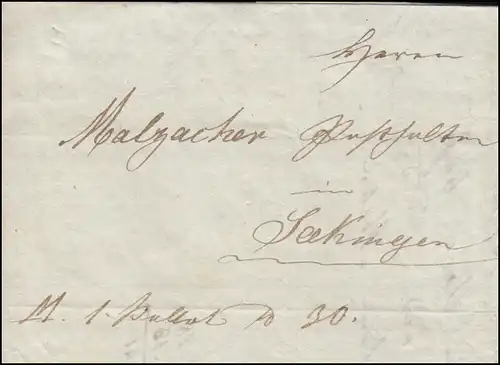 Herrn
Malzacher Posthalter
in
Seckingen
M. 1. Ballot 30.